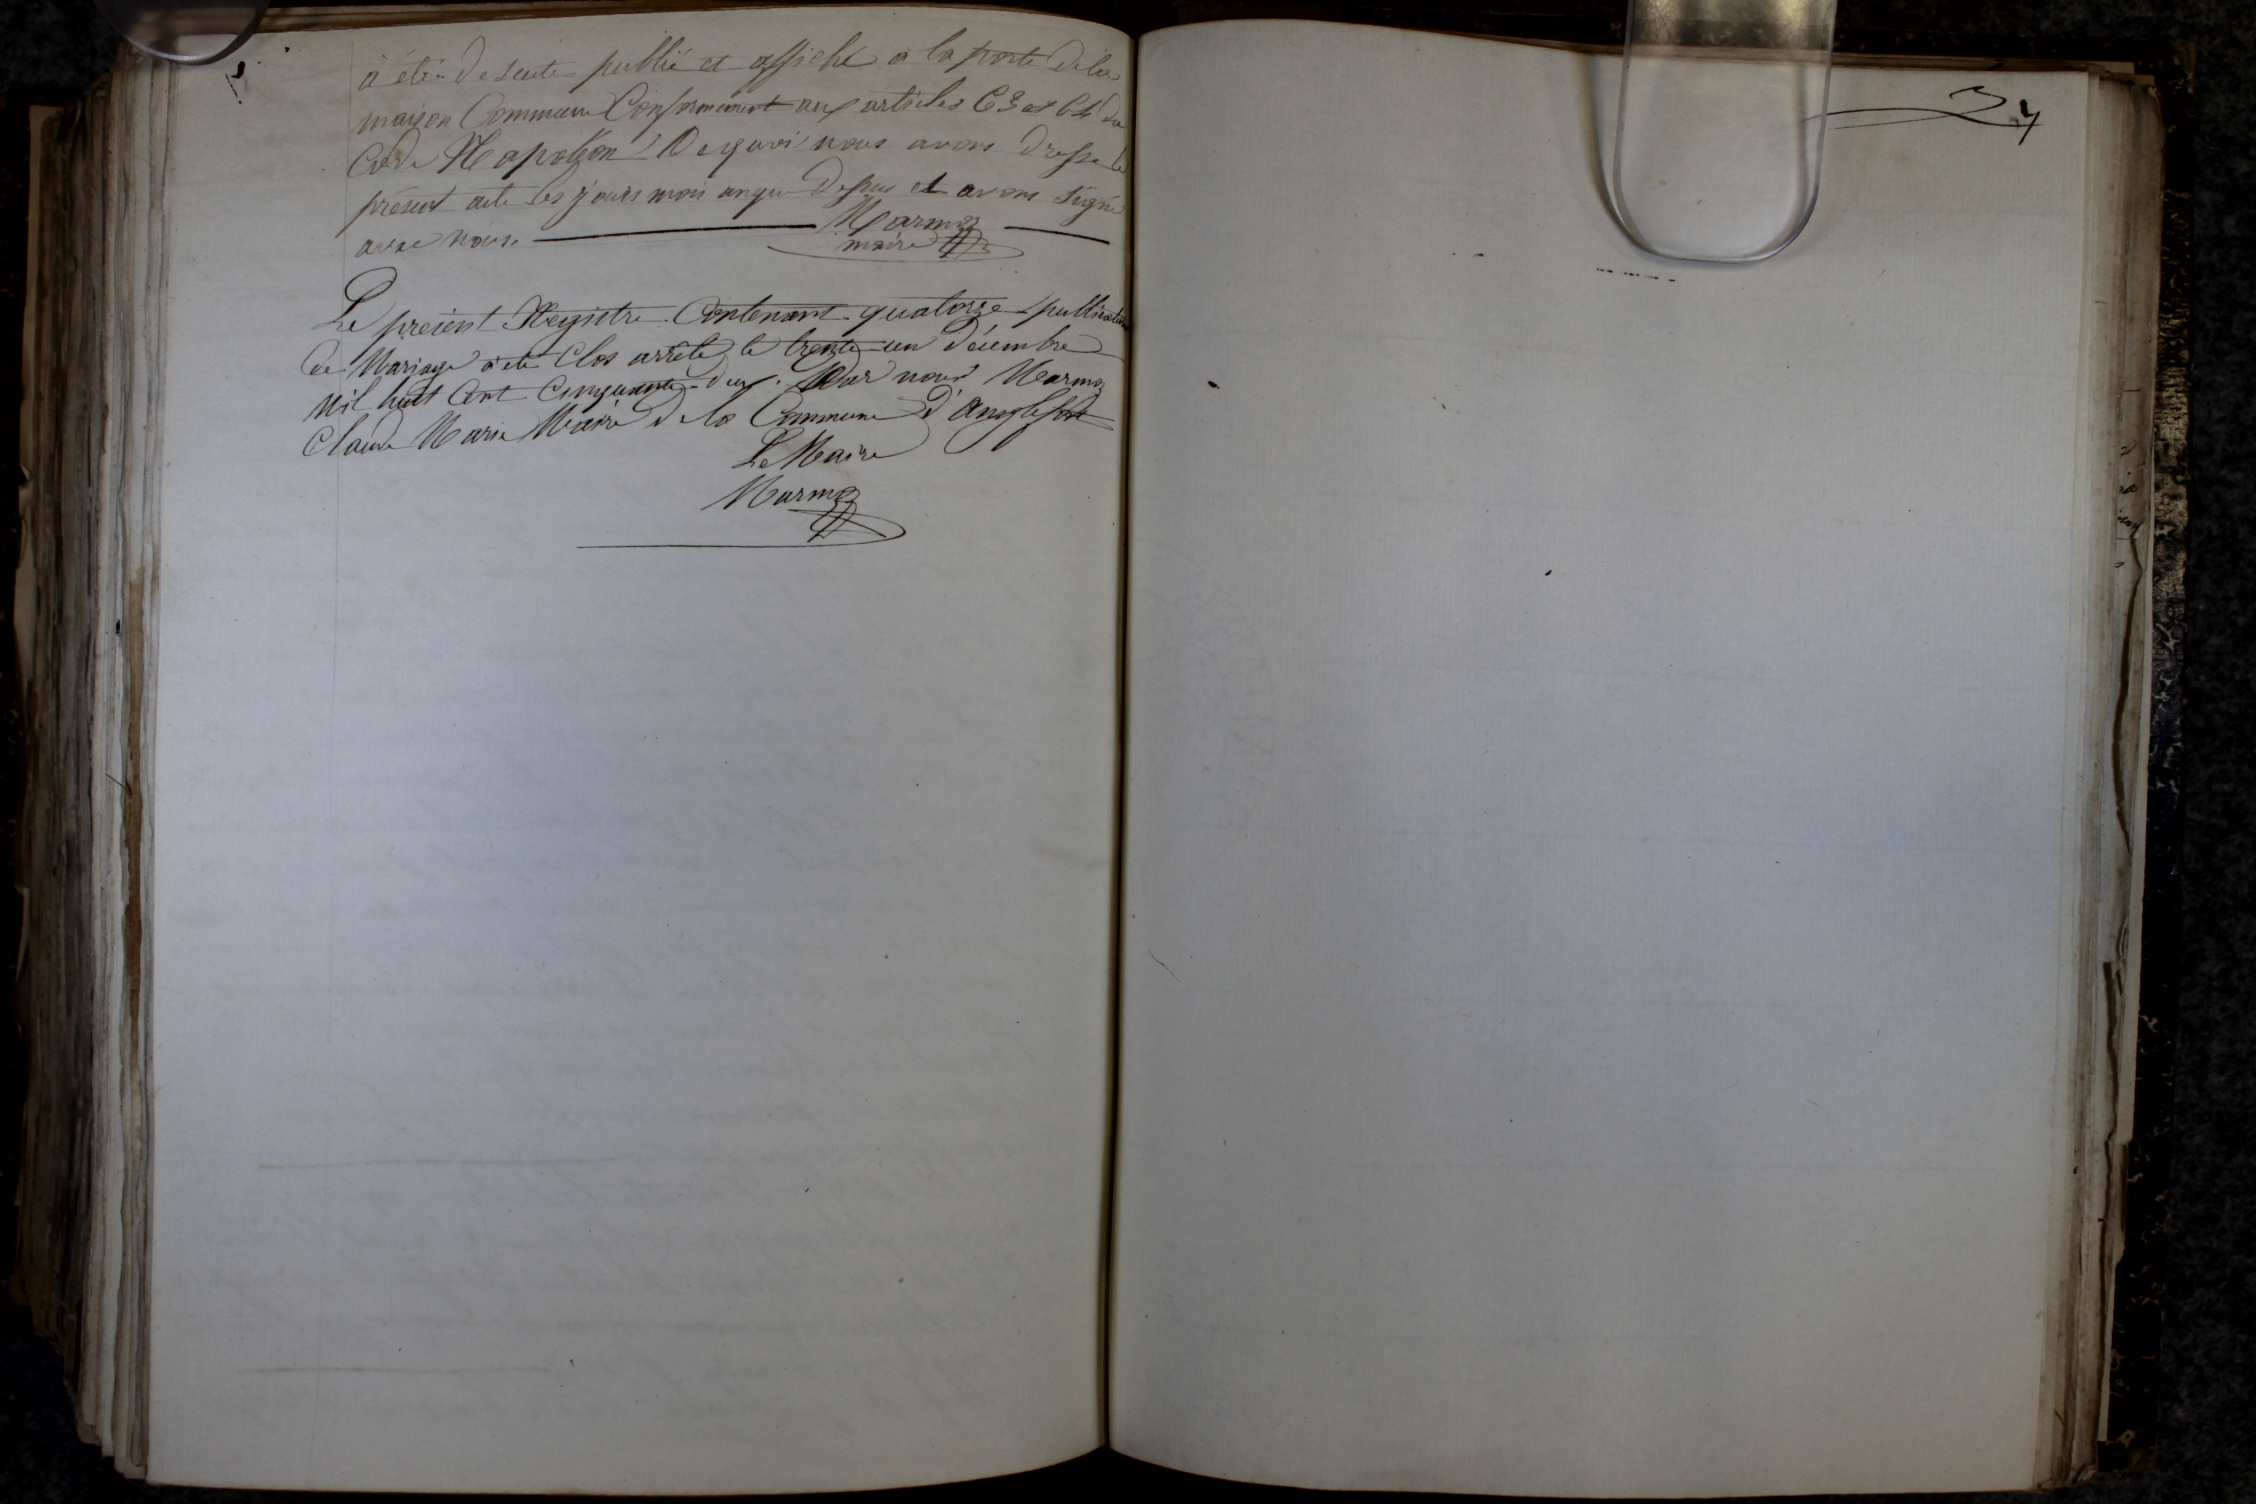 à été de suite publié et affiché à la porte de la
maison Commune Conformément aux articles 63 et 64 du
Code Napoléon De quoi nous avons dressé le
présent acte les jours mois an que dessus et avons signé
avec nous.
Marmoz
maire
Le présent Registre Contenant quatorze publication
de Mariage à été Clos arrêté le trente un décembre
Mil huit Cent Cinquante-deux. Par nous Marmoz
Claude Marie Maire de la Commune d'Anglefort
Le Maire
Marmoz